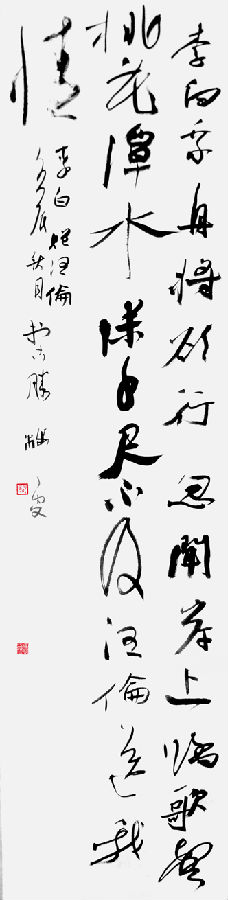 李白乘舟將欲行忽聞岸上踏歌聲
桃花潭水深千尺不及汪倫送我
情
李白贈汪倫
秋月